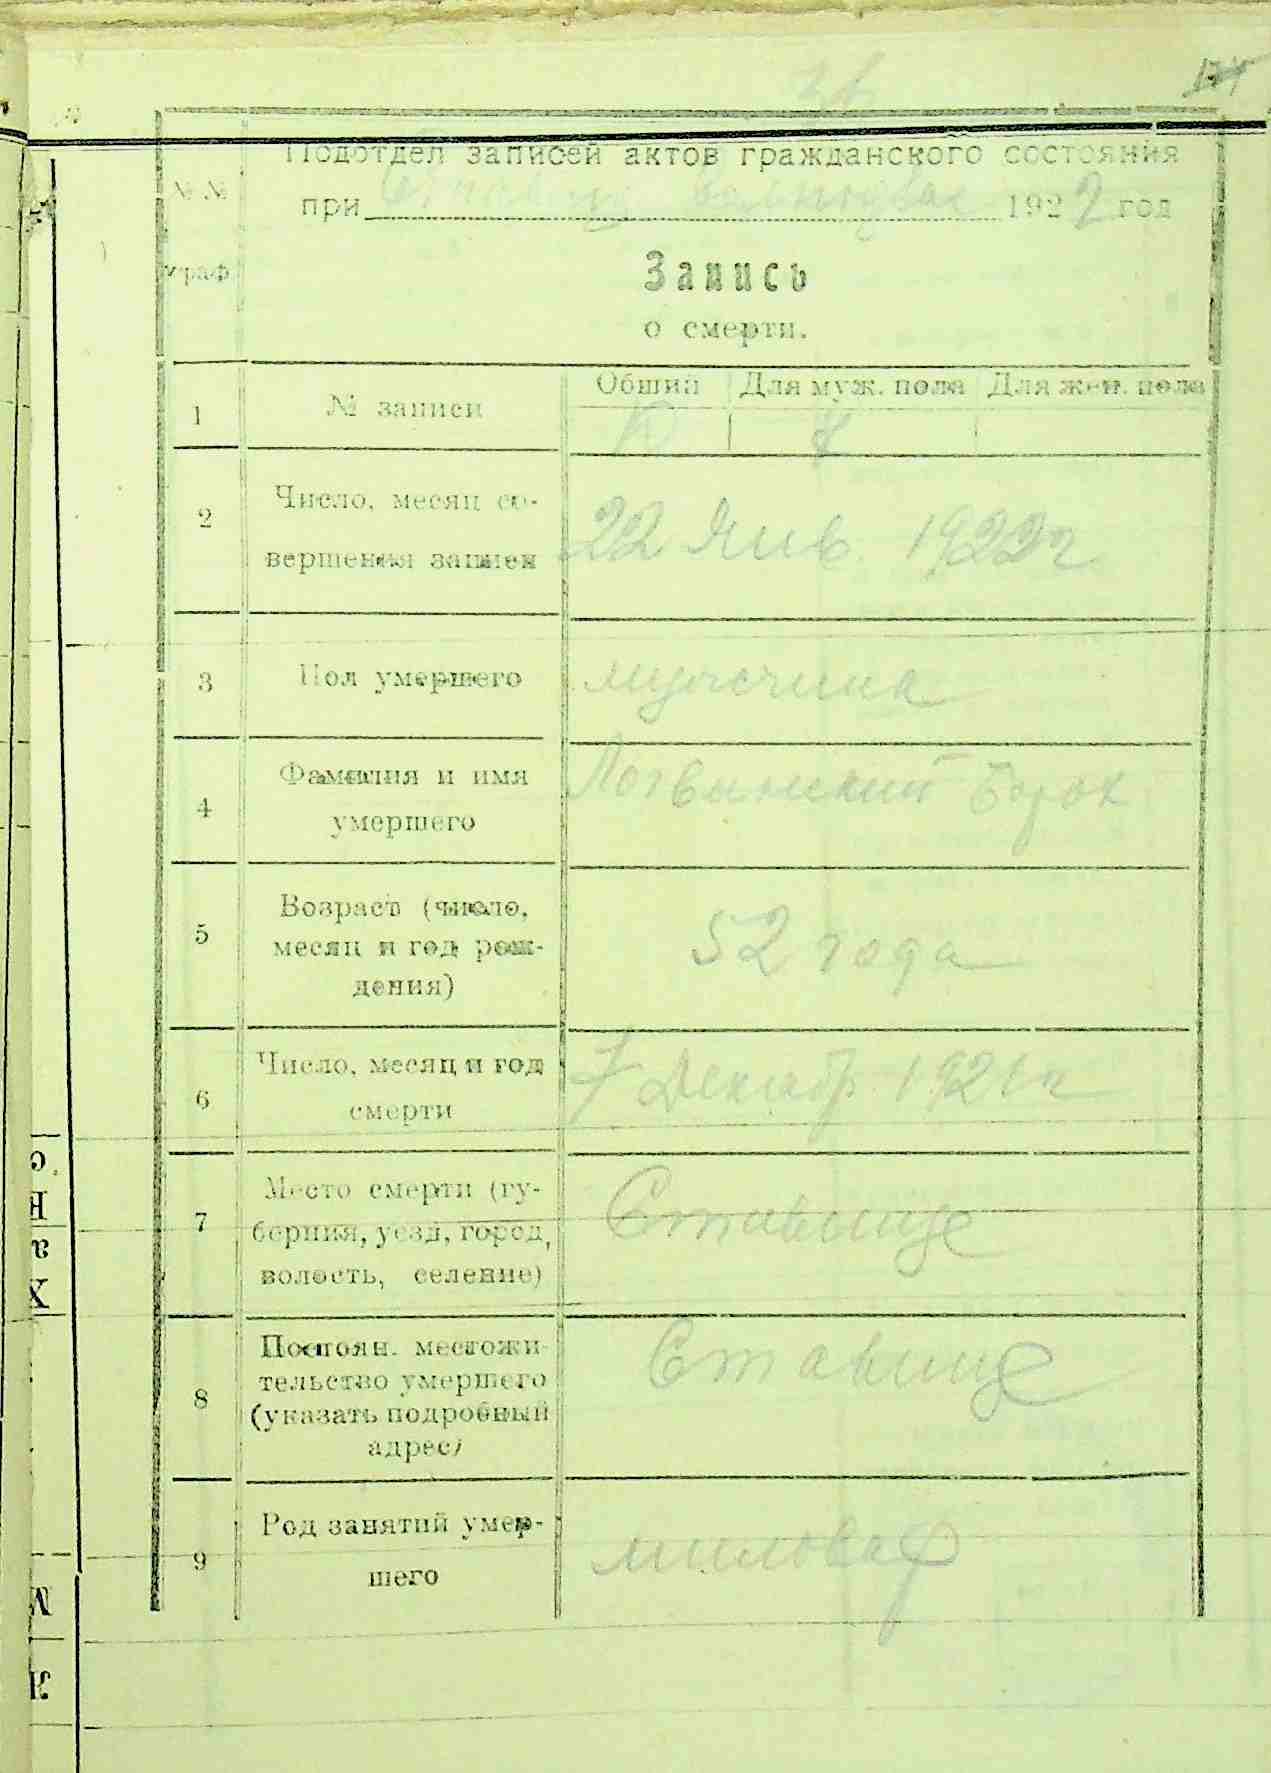 Подотдел записей актов гражданского состояния
№№ граф
при 1922 год
Запись
о смерти.
1 № записи Общий Для муж. пола Для жен. пола
8
2 Число, месяц со-
вершения записи
22 Янв. 1922 г
3 Пол умершего мужчина
4 Фамилия и имя
умершего
5 Возраст (число,
месяц и год рож-
дения)
52 года
6 Число, месяц и год
смерти
7 Декабр. 1921 г
7 Место смерти (гу-
берния, уезд, город,
волость, селение)
Ставище
8 Постоян. местожи-
тельство умершего
(указать подробный
адрес)
Ставище
9 Род занятий умер-
шего
миловар